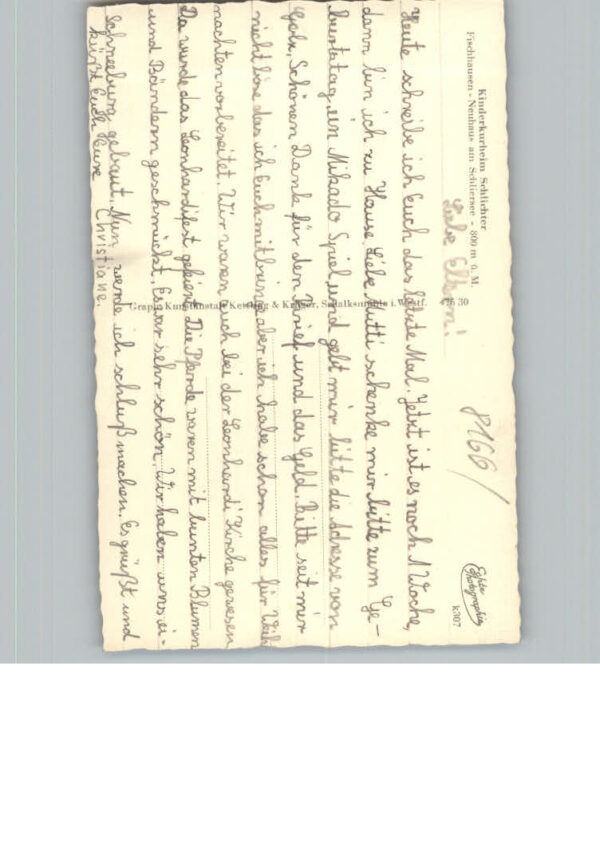 Kinderkurheim Schlichter
Fischhausen - Neuhaus am Schliersee - 800 m ü. M.
Liebe Eltern!
8166/
Echte
Photographie
k307
Heute schreibe ich Euch das letzte Mal. Jetzt ist es noch 1 Woche,
dann bin ich zu Hause. Liebe Mutti schenke mir bitte zum Ge-
burtstag ein Mikado Spiel und gebt mir bitte die Adresse von
Schönen Dank für den Brief und das Geld. Bitte seit mir
nicht böse das ich Euch mitbringe aber ich habe schon alles für Weih
nachten vorbereitet. Wir waren auch bei der Leonhardi Kirche gewesen
Da wurde das Leonhardifest gefeiert. Die Pferde waren mit bunten Blumen
und Bändern geschmückt. Es war sehr schön. Wir haben uns ei-
Schneeburg gebaut. Nun werde ich schluß machen. Es grüßt und
küßt Euch Eure Christiane.
Graph. Kunstanstalt Kettling & Krüger, Schalksmühle i. Westf. 426 30